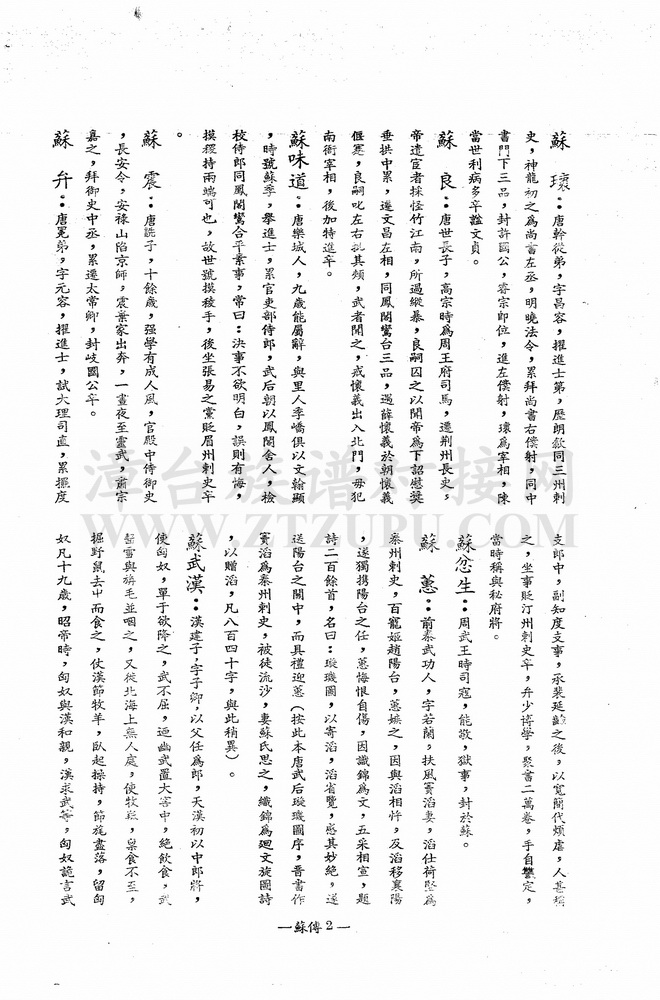 蘇　瓌：唐幹從弟，字昌容，擢進士第，歷朗歙同三州刺
史，神龍初之爲尚書左丞，明曉法令，累拜尚書右僕射，同中
書門下三品，封許國公，睿宗卽位，進左僕射，瓌爲宰相，陳
當世利病多卒諡文貞。
蘇　良：唐世長子，高宗時爲周王府司馬，遷荆州長史，
帝遣宦者採怪竹江南，所過縱暴，良嗣囚之以聞帝爲下詔慰奬
垂拱中累，遷文昌左相，同鳳閣鸞台三品，遇薛懷義於朝懷義
偃蹇，良嗣叱左右批其頰，武者聞之，戒懷義出入北門，毋犯
南衙宰相，後加特進卒。
蘇味道：唐欒城人，九歲能屬辭，與里人李嶠俱以文翰顯
，時號蘇李，擧進士，累官吏部侍郎，武后朝以鳳閣舍人，檢
校侍郎同鳳閣鸞合平章事，常曰：決事不欲明白，誤則有悔，
摸稜持兩端可也，故世號摸稜手，後坐張易之黨貶眉州刺史卒
。
蘇　震：唐詵子，十餘歲，强學有成人風，官殿中侍御史
，長安令，安祿山陷京師，震棄家出奔，一晝夜至靈武，肅宗
嘉之，拜御史中丞，累遷太常卿，封岐國公卒。
蘇　弁：唐冕弟，字元容，擢進士，試大理司直，累擢度
支郎中，副知度支事，承裴延齡之後，以寬簡代煩虐，人甚稱
之，坐事貶汀州刺史卒，弁少博學，聚書二萬卷，手自讐定，
當時稱與秘府將。
蘇忿生：周武王時司寇，能敬，獄事，封於蘇。
蘇　蕙：前秦武功人，字若蘭，扶風竇滔妻，滔仕苻堅爲
秦州刺史，百寵姬趙陽台，蕙嫉之，因與滔相忤，及滔移襄陽
，遂獨携陽台之任，蕙悔恨自傷，因識錦爲文，五采相宣，題
詩二百餘首，名曰：璇璣圖，以寄滔，滔省覽，感其妙絶，遂
送陽台之關中，而具禮迎蕙（按此本唐武后璇璣圖序，晋書作
竇滔爲秦州刺史，被徒流沙，妻蘇氏思之，織錦爲廻文旋圖詩
，以贈滔，凡八百四十字，與此稍異）。
蘇武漢：漢建子，字子卿，以父任爲郎，天漢初以中郎將，
使匈奴，單于欲降之，武不屈，迺幽武置大窖中，絶飲食，武
齧雪與旃毛並咽之，又徙北海上無人處，使牧羝，稟食不至，
掘野鼠去屮而食之，仗漢節牧羊，臥起操持，節旄盡落，留匈
奴凡十九歲，昭帝時，匈奴與漢和親，漢求武等，匈奴詭言武
—蘇傳2—
漳台族谱对接网
WWW.ZTZUPU.COM